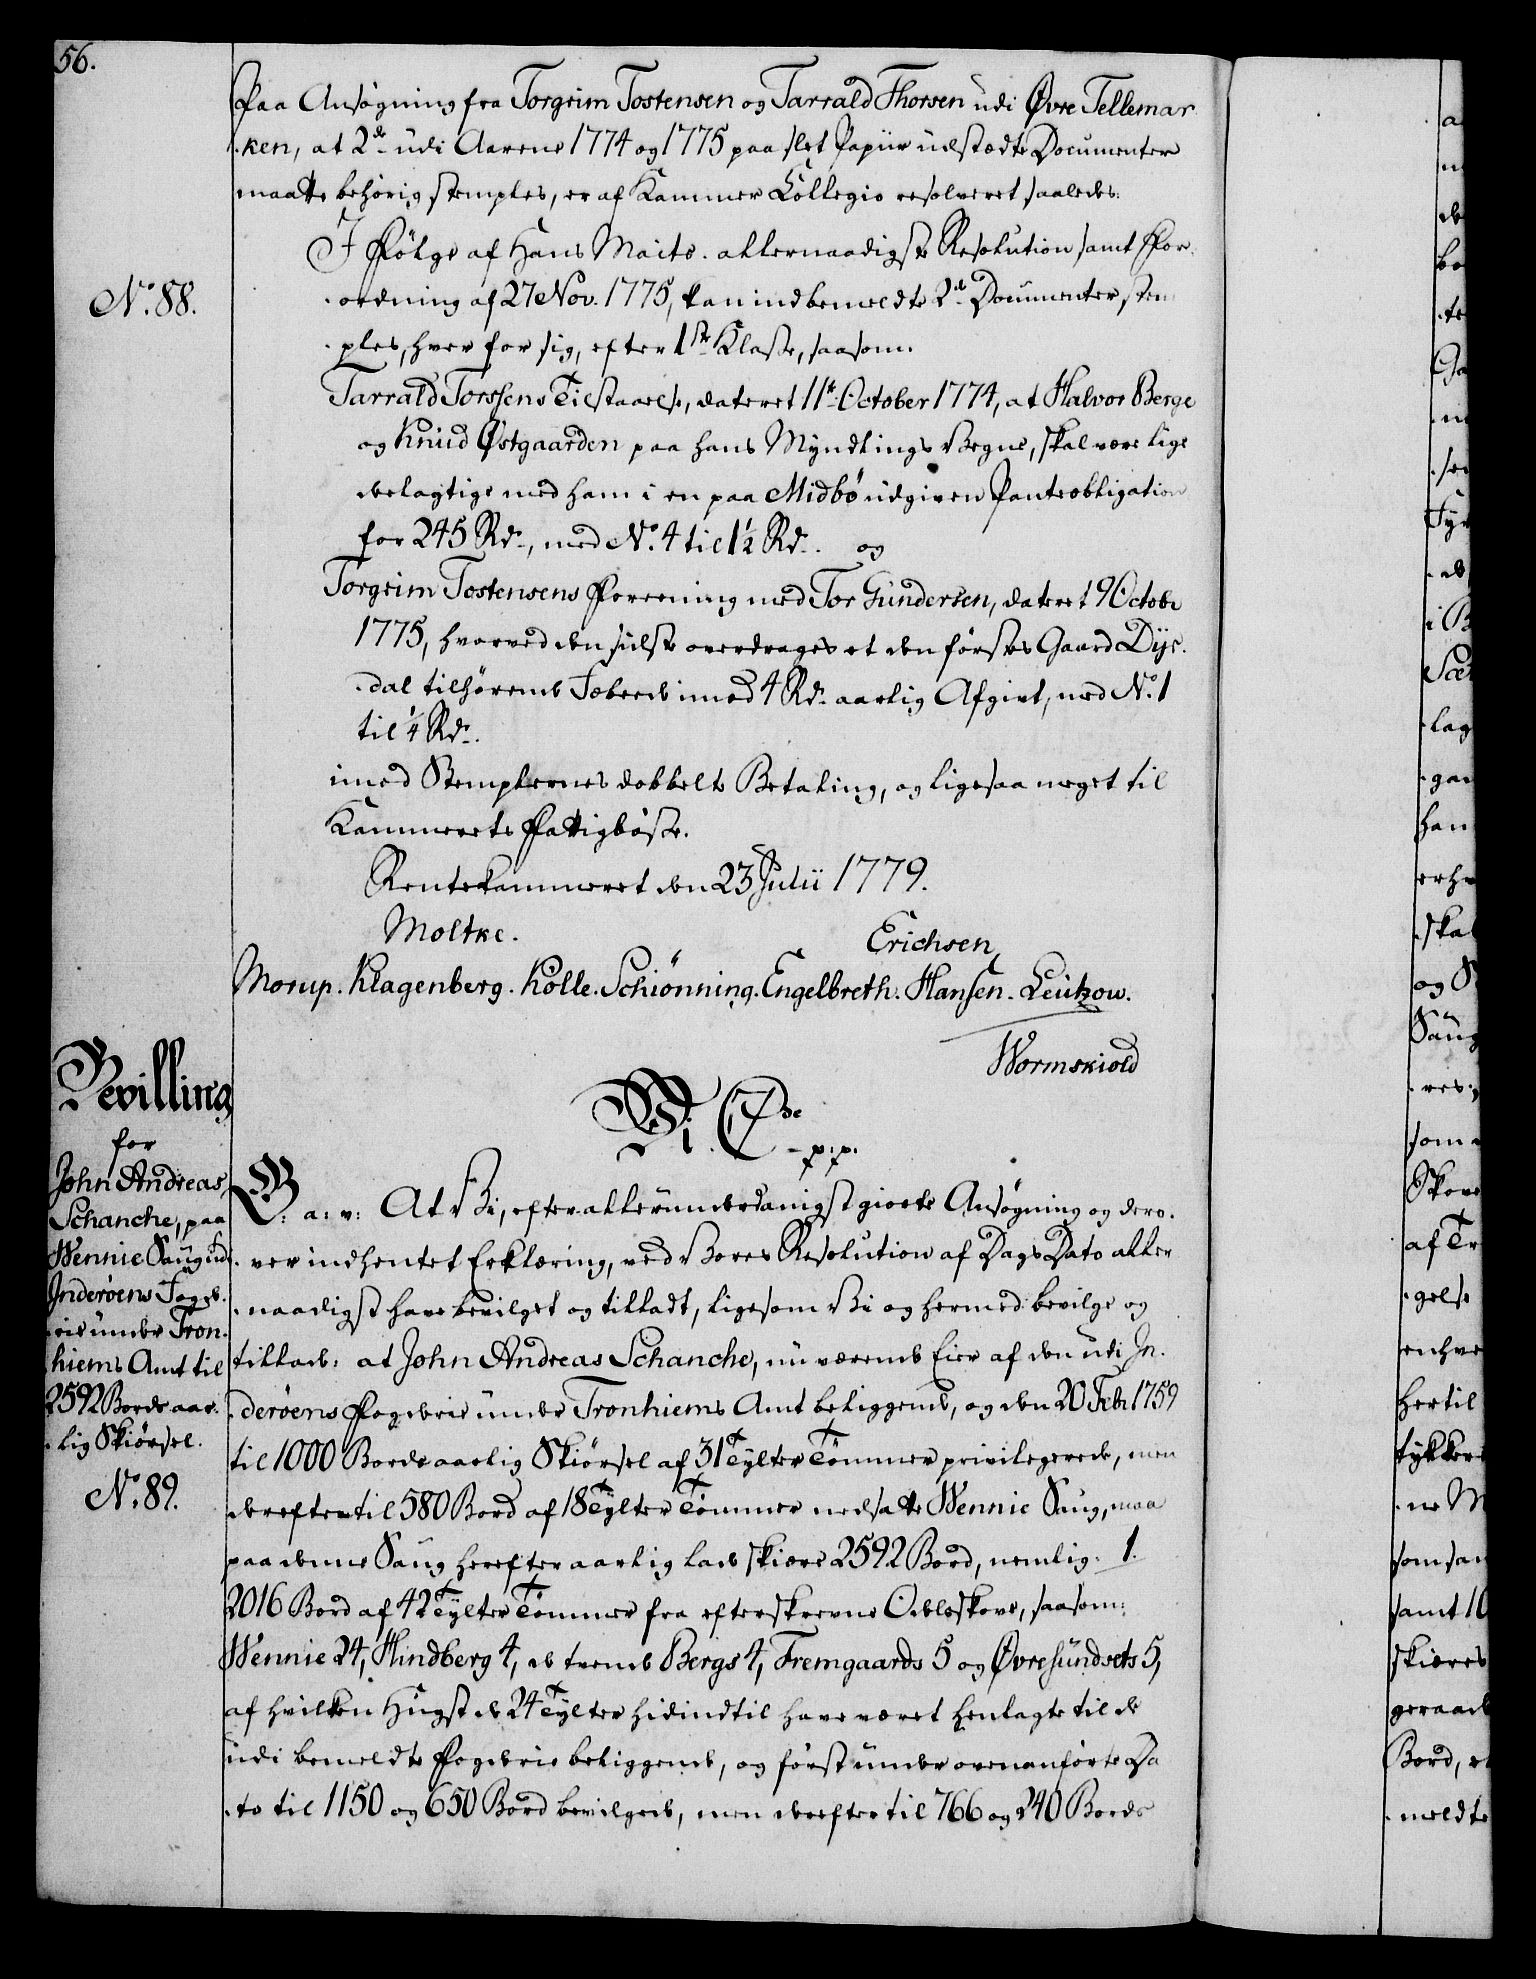 56.
Paa Ansøgning fra Torgrim Tostensen og Tarrald Thorsen udi Øvre Tellemar
ken, at 2de udi Aarene 1774 og 1775 paa slet Papiir udstædte Documenter
maatte behørig stemples, er af Kammer Collegio resolveret saaledes:
No. 88.
I Følge af Hans Maits. allernaadigste Resolution samt For
ordning af 27 Nov. 1775, kan indbemeldte 2de Documenter stem
ples, hver for sig, efter 1ste Klasse, saasom:
Tarrald Torssens Tilstaaelse, dateret 11te October 1774, at Halvor Berge
og Knud Østgaarden paa hans Myndlings Vegne, skal være lige
deelagtige med ham i en paa Midbö udgiven Panteobligation
for 245 Rdr., med No. 4 til 1½ Rdr. og
Torgrim Tostensens Foreening med Tor Gundersen, dateret 9 Octobr
1775, hvorved den sidste overdrages et den førstes Gaard Dys
dal tilhørende imod 4 Rdr. aarlig Afgivt, med No. 1
til ¼ Rdr.
imod Stemplernes dobbelte Betaling, og ligesaa meget til
Kammerets Fattigbøsse.
Rentekammeret den 23 Julii 1779.
Moltke. Erichsen
Morup. Klagenberg. Kölle. Schiönning. Engelbreth. Hansen. Leützow.
Wormskiold
Bevilling
for
John Andreas
Schanche, paa
Wennie Saug udi
Inderöens Foge
rie under Tron
hiems Amt til
2592 Bords aar
lig Skiørsel.
No. 89.
Vi C 7de p: p.
G: a: v: At Vi, efter allerunderdanigst giorte Ansøgning og dero
ver indhentet Erklæring, ved Vores Resolution af Dags Dato aller
naadigst have bevilget og tilladt, ligesom Vi og hermed bevilge og
tillade: at John Andreas Schanche, nu værende Eier af den udi In
deröens Fogderie under Tronhiems Amt beliggende, og den 20 Febr 1759
til 1000 Bords aarlig Skiørsel af 31 Tylter Tømmer privilegerede, men
derefter til 580 Bord af 18 Tylter Tømmer nedsatte Wennie Saug, maa
paa denne Saug herefter aarlig lade skiære 2592 Bord, nemlig: 1.
2016 Bord af 42 Tylter Tømmer fra efterskrevne Odelsskove, saasom:
Wennie 24, Hindberg 4, de tvende Bergs 4, Fremgaards 5 og Øvresundsets 5,
af hvilken Hugst de 24 Tylter hidindtil have været henlagte til de
udi bemeldte Fogderie beliggende, og først under ovenanførte Da
to til 1150 og 650 Bord bevilgede, men derefter til 766 og 240 Bords